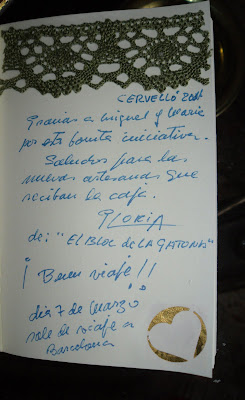 CERVELLÓ 2014
Gracias a Miguel y María
por esta bonita iniciativa.
Saludos para las
nuevas artesanas que
reciban la caja.
GLORIA
de: "EL BLOC DE LA GATONA"
¡Buen viaje!!
día 7 de Marzo
sale de viaje a
Barcelona